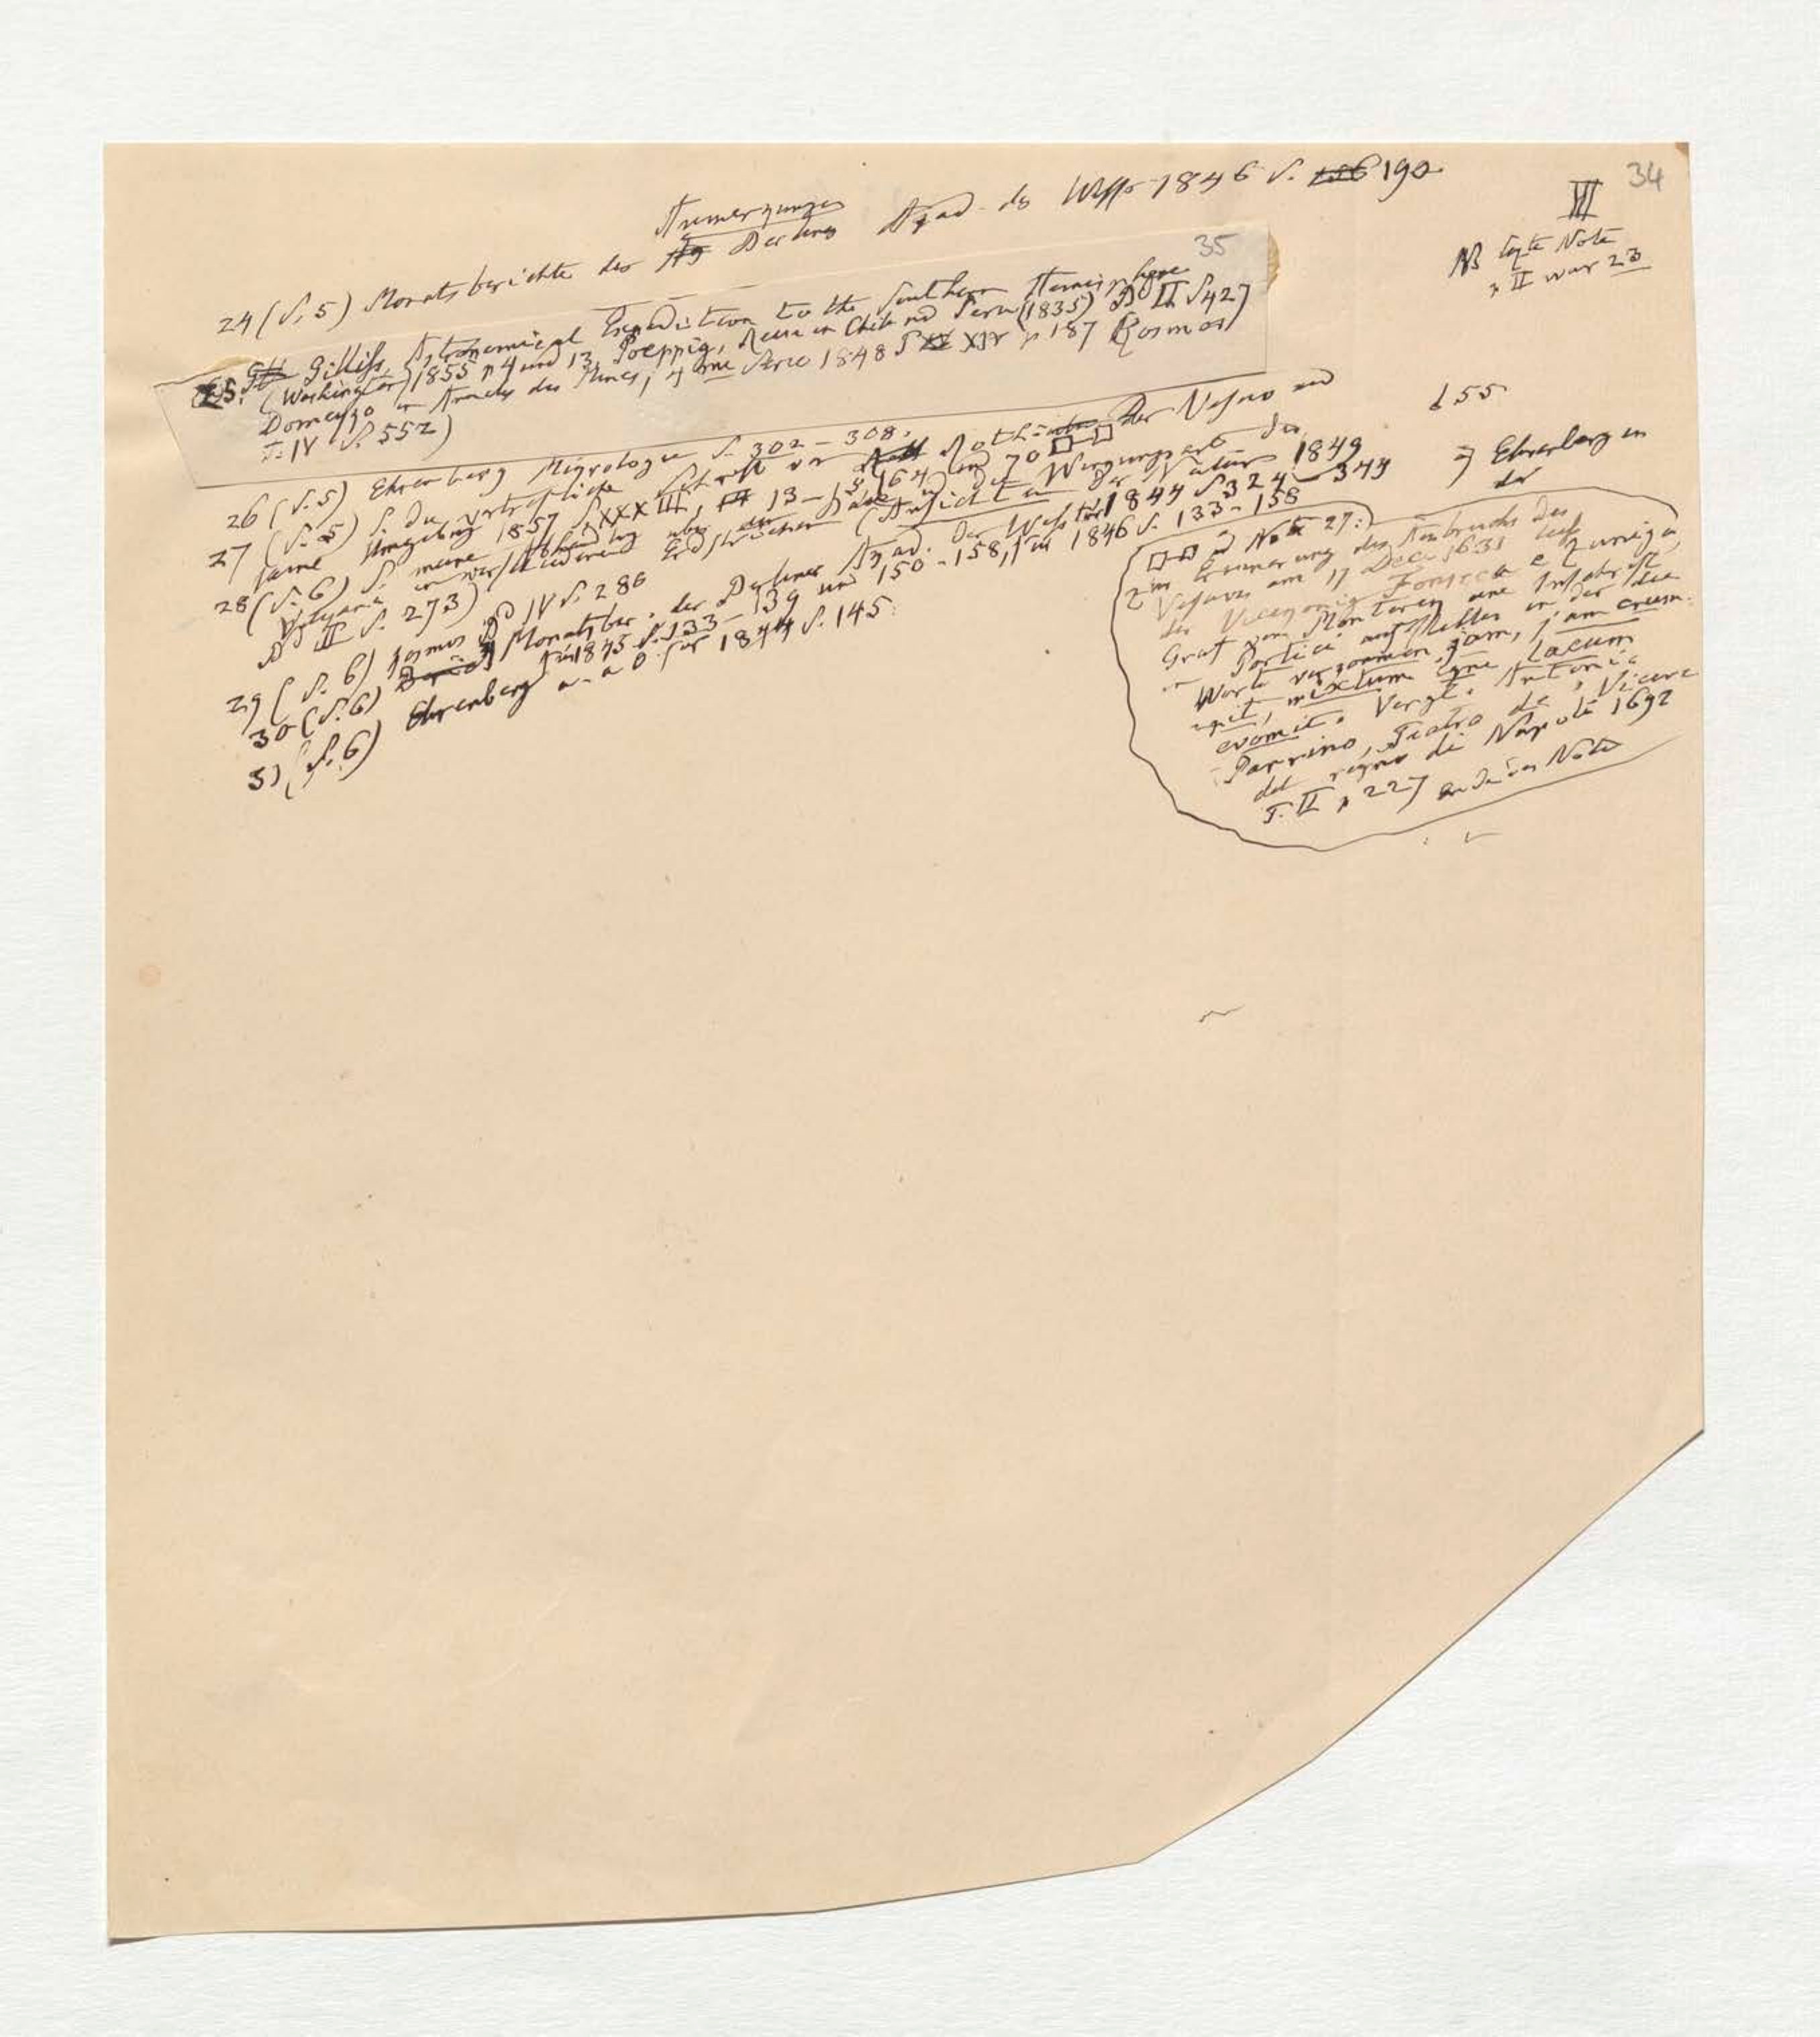 34
III
NB letzte Note
in II war 23
Anmerkungen
24 (S. 5) Monatsberichte der Berliner Akad. der Wiss. 1846 S. 190
35
25. Gilliss, Astronomical Expedition to the Southern Hemisphere
(Washington) 1855 p 4 und 13, Poeppig, Reise in Chile und Peru (1835) Bd II S 427
Domeyko in Annales des Mines, 4me Serie 1848 T XIV p 187 (Kosmos
T. IV S. 552)
26 (S. 5) Ehrenberg Mikrogeologie S. 302 – 308.
27 (S. 5) S. die vortrefliche Schrift von Roth: Der Vesuv und
seine Umgebung 1857 S XXXIII, 13 – 15, 164 und 70
28 (S. 6) S. meine Abhandlung über den Bau und die Wirkungsart der
Vulkane in verschiedenen Erdstrichen (Ansichten der Natur 1849
Bd II S. 273)
29 (S. 6) Kosmos Bd IV S. 286
30 (S. 6) Monatsber. der Berliner Akad. der Wiss. für 1844 S 324 – 344
für 1845 S. 133 – 139 und 150 – 158, für 1846 S. 133 - 158
31 (S. 6) Ehrenberg a. a O für 1844 S. 145.
155
Ehrenberg in
der
zu Note 27:
Zur Erinnerung des Ausbruchs des
Vesuvs am 17 Dec 1631 liess
der Vicekönig Fonseca e Zunica,
Graf von Monterey eine Inschrift
in Portici aufstellen in der die
Worte vorkommen jam, jam erum-
pit, mixtum igne lacum
evomit. Vergl. Antonio
Parrino, Teatro de' Vicere
del regno di Napoli 1692
T. II p 227 Ende der Note